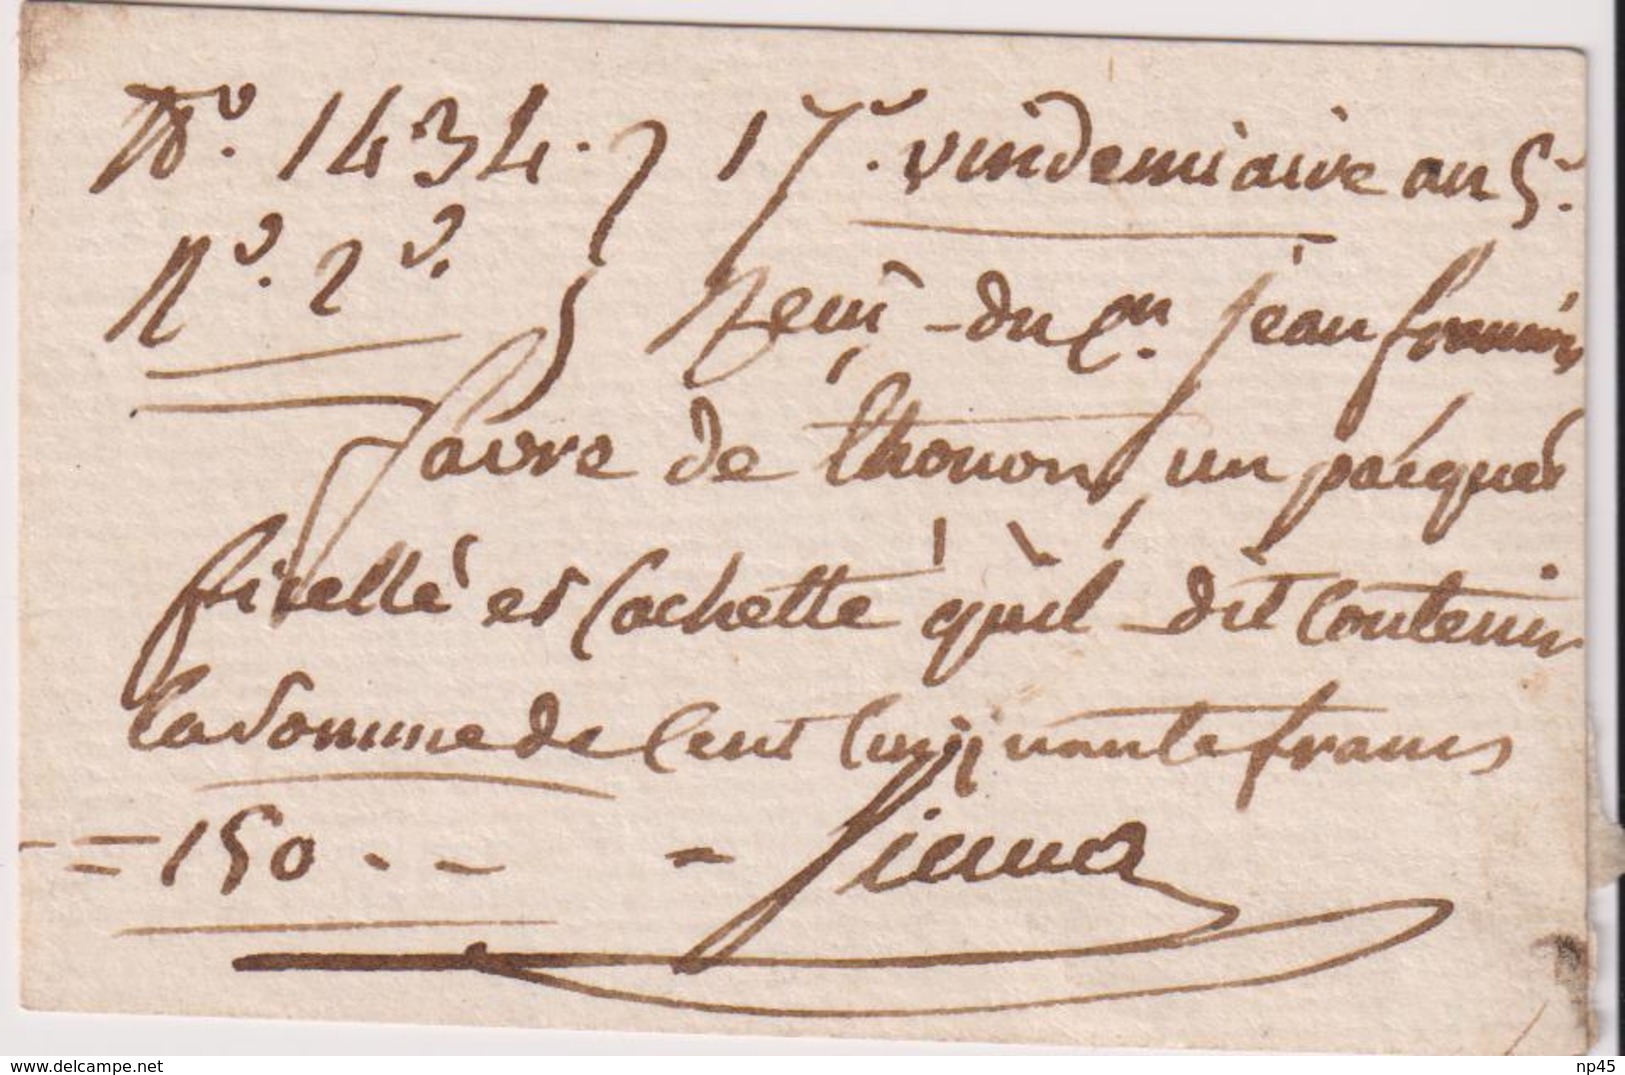 No. 1434. 17e. vindemiaire an 5e.
No. 2e. Reçu du Cen. jean
favre de thonon, un paiquet
ficellé et Cachetté qu'il dit Contenir
la Somme de Cent Cinquante francs
= 150 . - -
delcampe.net
np45